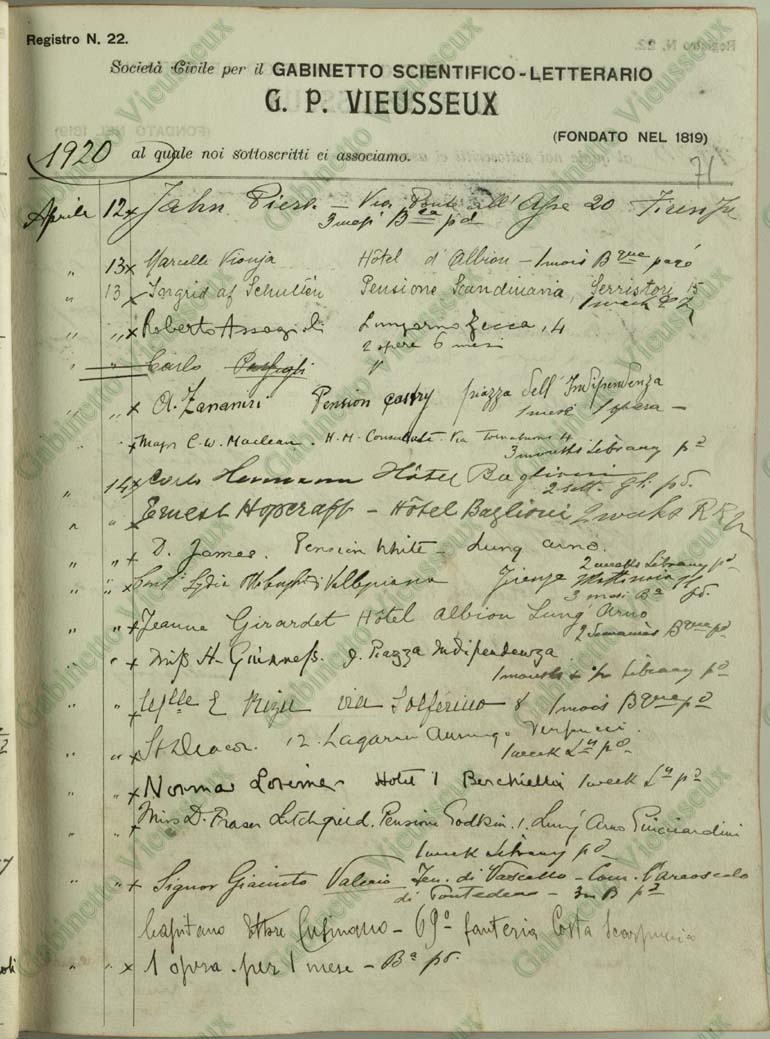 Registro N. 22.
Società Civile per il GABINETTO SCIENTIFICO-LETTERARIO
G. P. VIEUSSEUX
(FONDATO NEL 1819)
1920 al quale noi sottoscritti ci associamo.
71
Aprile 12 x Jahn Via 20 Firenze
3 mesi Bca pd
" 13 x Marcelle Hôtel d'Albion - 1 mois Bque payé
" 13 Ingrid af Schultén Pensione Scandinavia, Serristori 15
1 week
" " x Roberto Assagioli Lungarno Zecca, 4
2 opere 6 mesi
" " Carlo "
" " x A. Zanamiri Pension piazza dell'Indipendenza
1 mese 1 opera -
" x Major C. W. Maclean. H. M. Consulate. Via Tornabuoni 4
3 months Library pd
" 14 x Carlo Hermann Hôtel Baglioni
2 sett. pd.
" " Ernest Hopcraft - Hôtel Baglioni 2 weeks
" " x D. James. Pension White - Lung'arno.
2 weeks Library pd
" " x Lydia Firenze
3 mesi Ba pd.
" " x Jeanne Girardet Hôtel Albion Lung'Arno
2 Semaines Bque pd.
" " x Miss H. Guinness. Piazza Indipendenza
1 month Library pd
" " x Mlle E via Solferino 8 1 mois Bque pd
" " x 12. Lungarno Amerigo Vespucci.
1 week Ly pd.
" " x Norma Lorimer Hotel Berchielli 1 week Ly pd
" " x Miss D. Fraser Litchfield. Pensione Godkin. 1. Lung'Arno Guicciardini
1 week Library pd
" " x Signor Giacinto Valerio Ten. di Vascello -
di Pontedera - 3m B pd
Capitano Ettore - 69° fanteria Costa Scarpuccia
" " x 1 opera per 1 mese - Ba pd.
Gabinetto Vieusseux